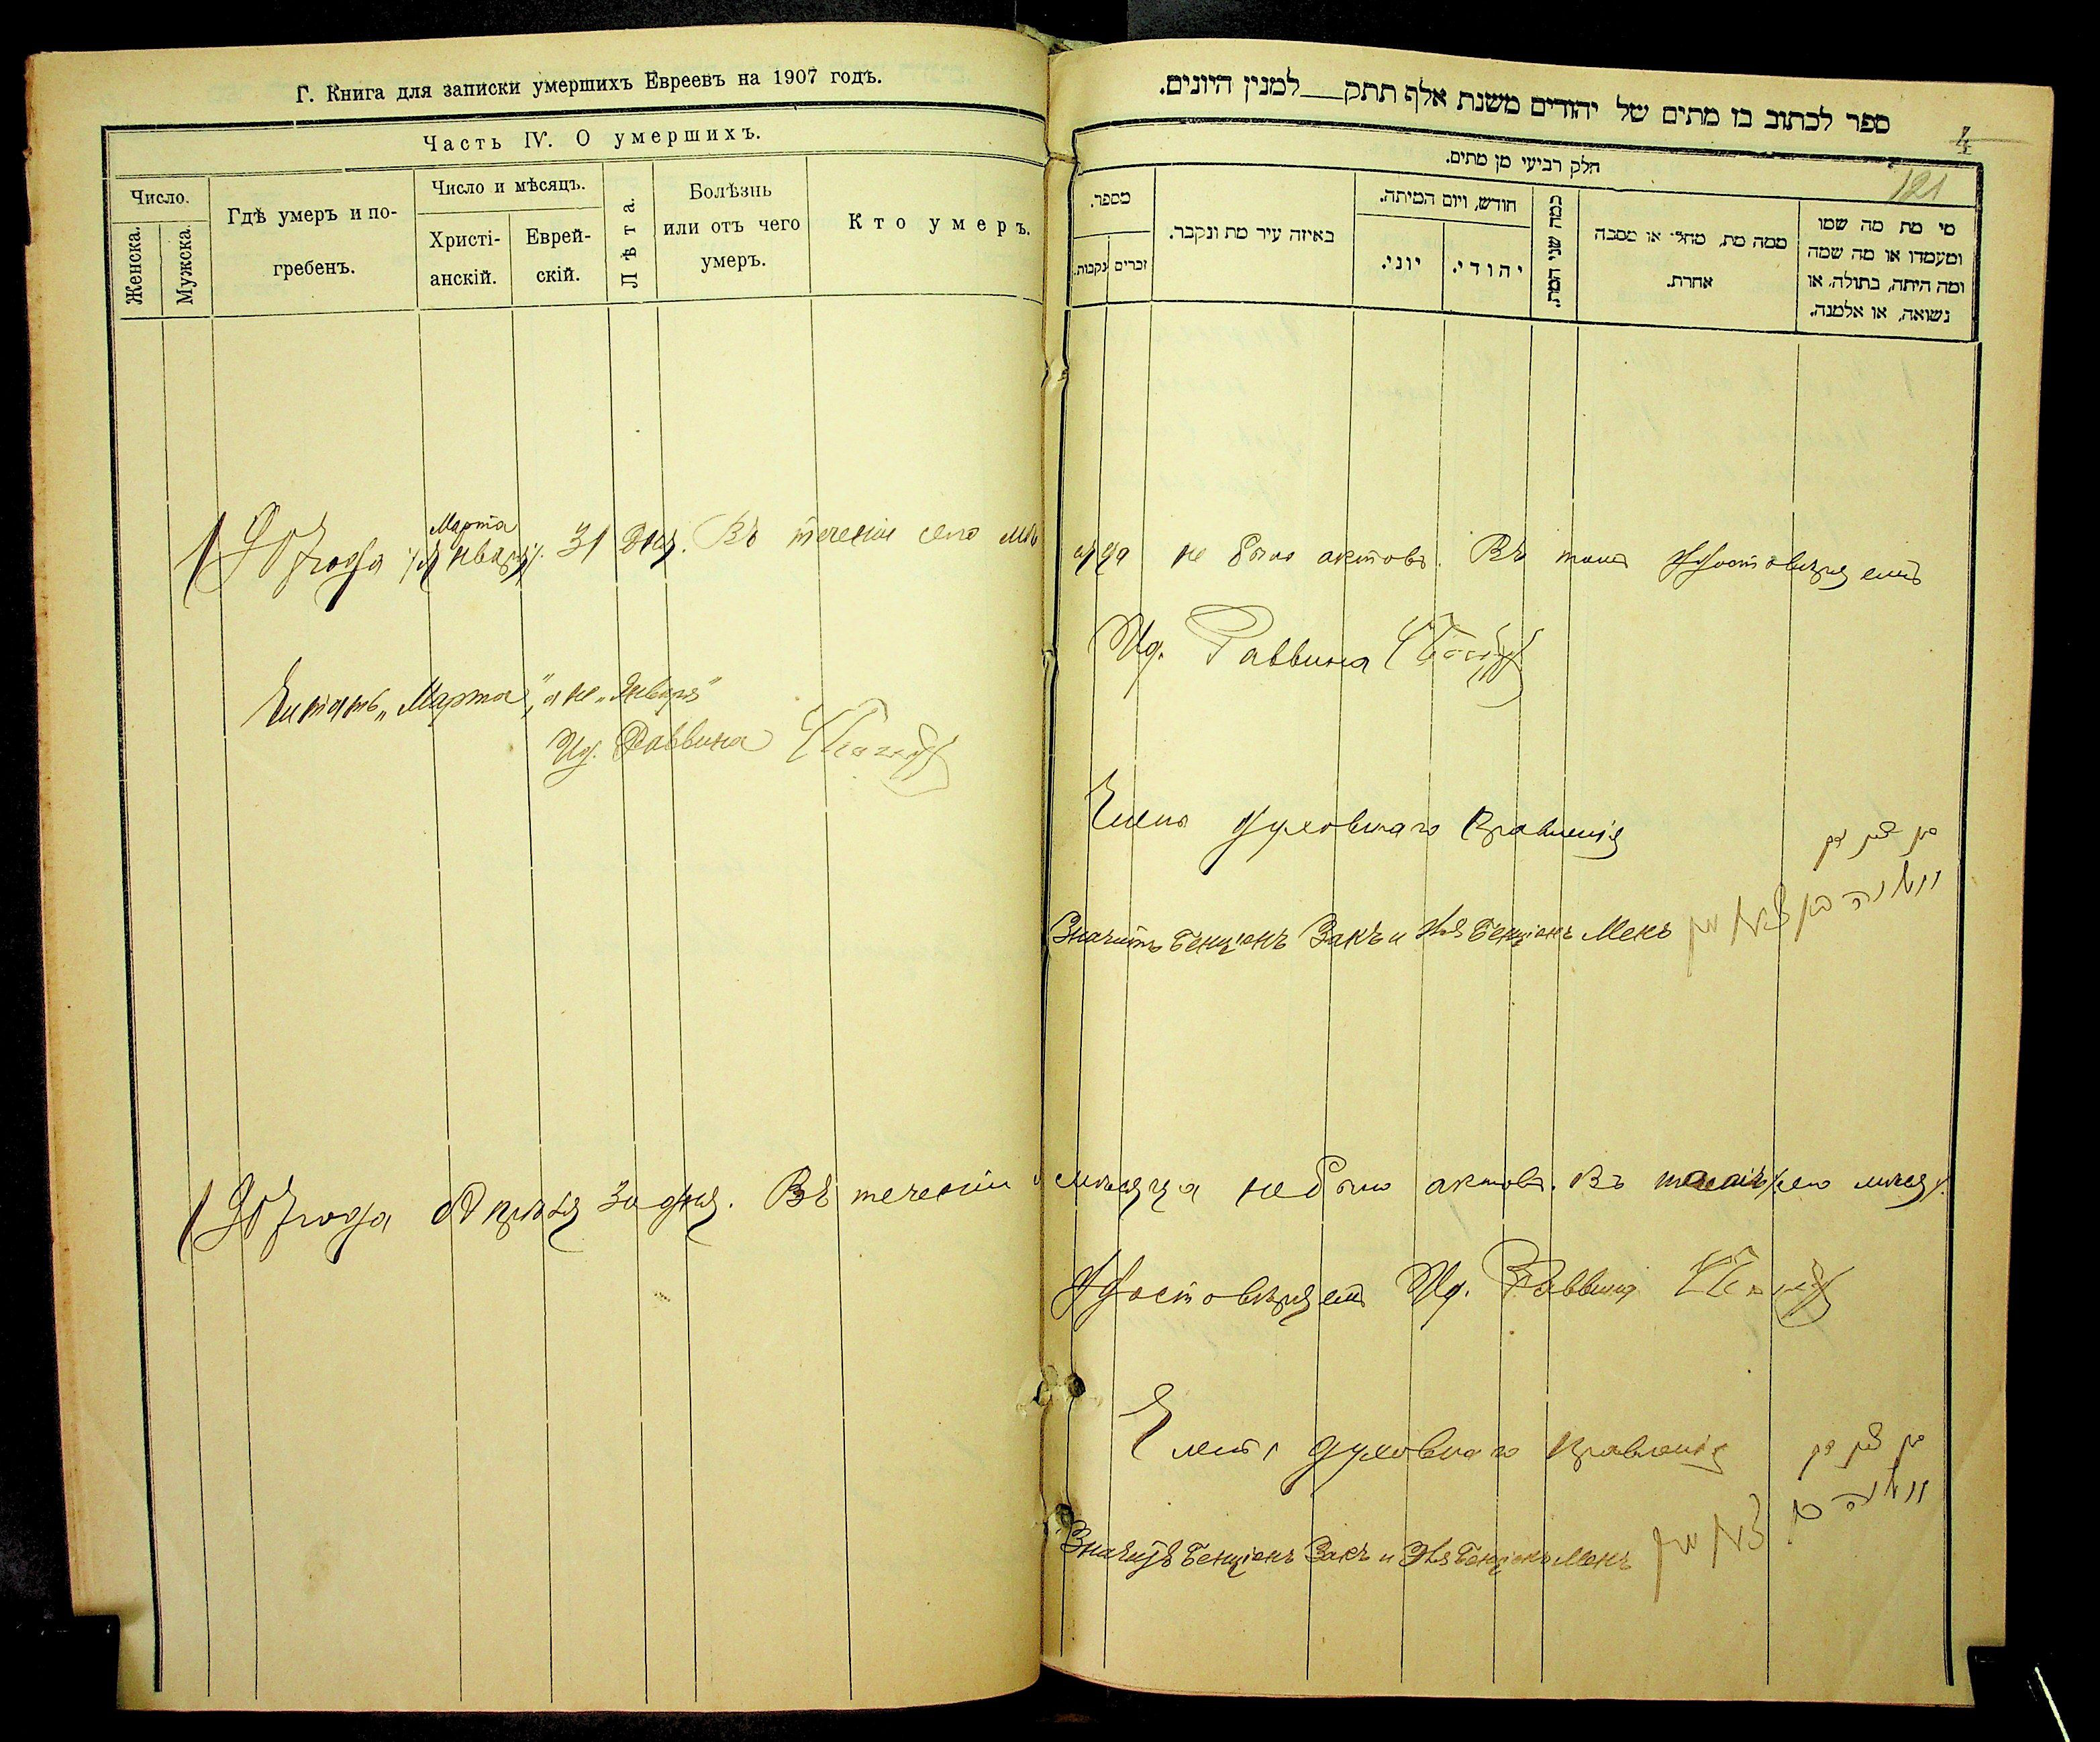 Г. Книга для записки умершихъ Евреевъ на 1907 годъ.
Часть IV. О умершихъ.
Число.
Женска.
Мужска.
Гдѣ умеръ и по-
гребенъ.
Число и мѣсяцъ.
Христі-
анскій.
Еврей-
скій.
Лѣта.
Болѣзнь
или отъ чего
умеръ.
Кто умеръ.
ספר לכתוב בז מתים של יהודים משנת אלף תתק למנין היונים.
4
121
חלק רביעי מן מתים.
מספר.
נקבות.
זכרים
באיזה עיר מת ונקבר.
חודש, ויום המיתה.
יוני.
יהודי.
כמה שני המת.
ממה מת, מחלי או מסבה
אחרת.
מי מת מה שמו
ומעמדו או מה שמה
ומה היתה, בתולה, או
נשואה, או אלמנה.
Марта
1907 года Января 31 дня. Въ теченіи сего мѣсяца не было актовъ. Въ томъ удостовѣряемъ
Ид. Раввина
Читать „Марта", а не „Января"
Ид. Раввина
Члены духовнаго правленія
Значитъ Бенціонъ Закъ и Бенціонъ Менъ
1907 года Апрѣля 30 дня. Въ теченіи мѣсяца не было актовъ. Въ сего
удостовѣряемъ Ид. Раввина
Члены духовнаго правленія
Значитъ Бенціонъ Закъ и Бенціонъ Менъ